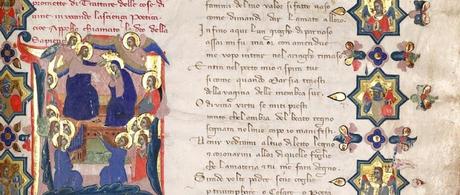 promette di Trattare delle cose di
uine inuocando la scienza Poetica
cioe Appollo chiamato lo dio della
Sapienza
fammi del tuo valor si fatto vaso
come dimandi dar lamato alloro
Infino aqui lun giogho di parnaso
assai mi fu ma or con amendue
me vopo intrar nel aringho rimaso
Entra nel petto mio e spira tue
si come quando Marsia traesti
della vagina delle membra sue
O diuina virtu se mi ti presti
tanto che lombra del beato regno
segnata nel mio capo manifesti
vedrami al tuo diletto legno
e coronarmi allor di quelle foglie
che la materia e tu me farai degno
Si rade volte padre sene coglie
p triumphare o Cesare o Poeta